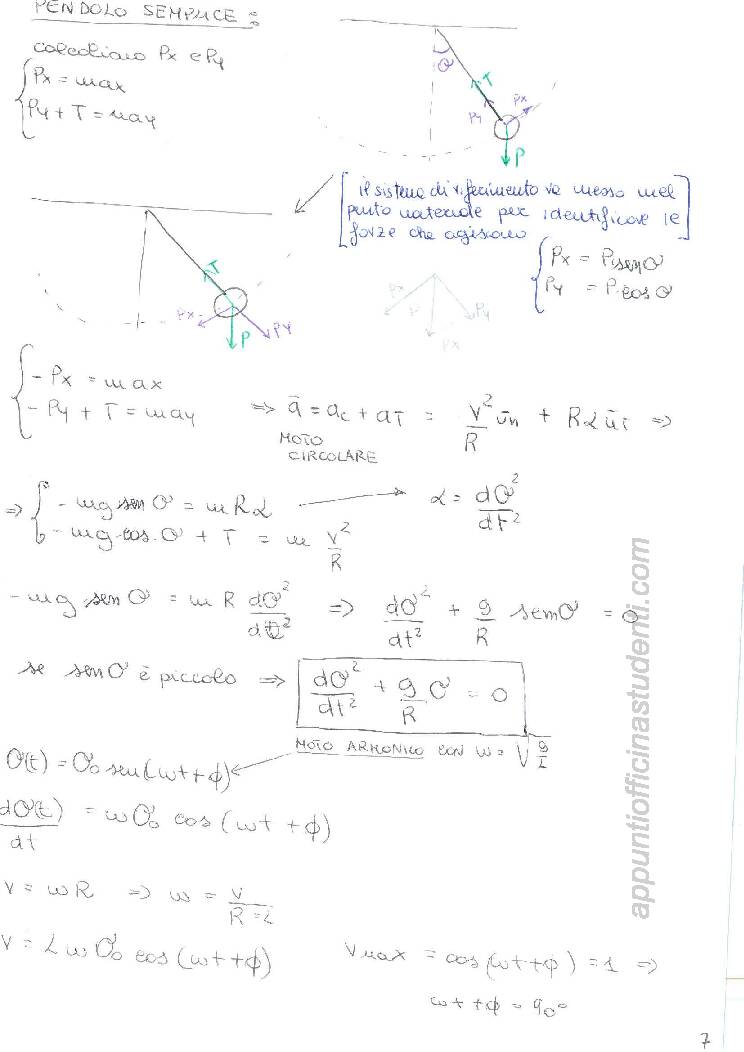 PENDOLO SEMPLICE:
calcoliamo Px e Py
Px = max
Py + T = may
θ
T
Px
Py
P
[il sistema di riferimento va messo nel
punto materiale per identificare le
forze che agiscono]
Px = P·senθ
Py = P·cosθ
T
Px
P
Py
Px
P
Py
Px
- Px = max
- Py + T = may ⇒ ā = ac + aT = v²/R ūn + Rα ūT ⇒
MOTO
CIRCOLARE
⇒ - mg senθ = mRα → α = dθ²/dt²
- mg·cos·θ + T = m v²/R
- mg·senθ = mR dθ²/dt² ⇒ dθ²/dt² + g/R senθ = 0
se senθ è piccolo ⇒ dθ²/dt² + g/R θ = 0
MOTO ARMONICO con ω = √g/L
θ(t) = θ₀ sen(ωt+ϕ)
dθ(t)/dt = ωθ₀ cos(ωt+ϕ)
v = ωR ⇒ ω = v/R=L
v = Lωθ₀ cos(ωt+ϕ) vmax = cos(ωt+ϕ) = 1 ⇒
ωt+ϕ = 90°
appuntiofficinastudenti.com
7